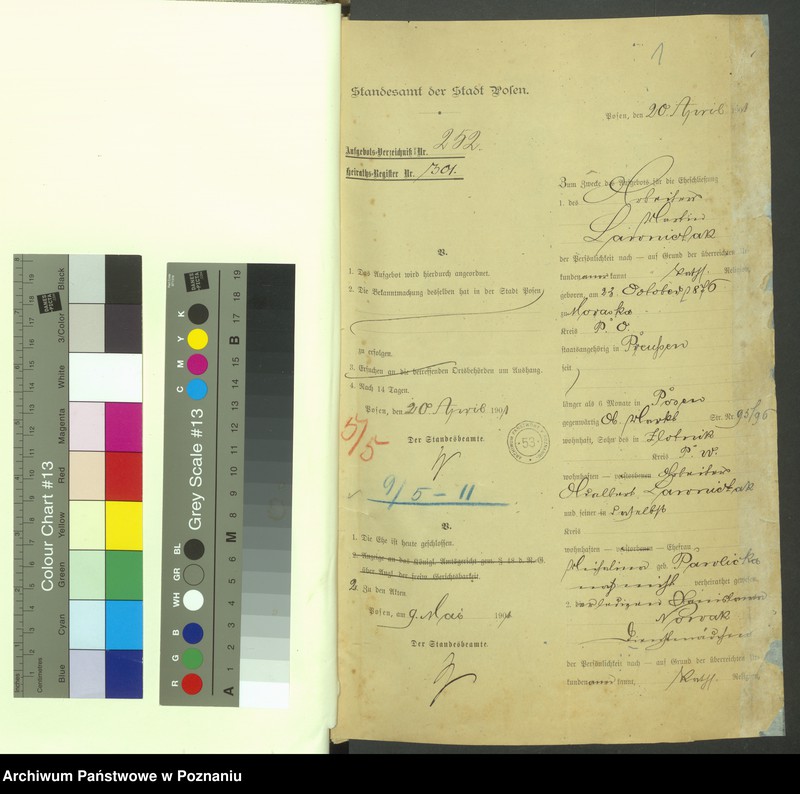 1
Standesamt der Stadt Posen.
Posen, den 20. April
Aufgebots-Verzeichniß Nr. 252.
Heiraths-Register Nr. 301.
V.
1. Das Aufgebot wird hierdurch angeordnet.
2. Die Bekanntmachung desselben hat in der Stadt Posen
zu erfolgen.
3. Ersuchen an die betreffenden Ortsbehörden um Aushang.
4. Nach 14 Tagen.
Posen, den 20 April 1901
5/5
Der Standesbeamte.
53
9/5 - 11
V.
1. Die Ehe ist heute geschlossen.
2. Anzeige an das Königl. Amtsgericht gem. § 48 d. R. G.
über Angl. der freiw. Gerichtsbarkeit
2. Zu den Akten
Posen, am 9. Mai 190
Der Standesbeamte.
Zum Zwecke des Aufgebots für die Eheschließung
1. des Arbeiters
Martin
Lawniczak
der Persönlichkeit nach — auf Grund der überreichten
kunden kannt, kath. Religion,
geboren am 23 October 1876
zu Morasko
Kreis P. O.
staatsangehörig in Preußen
seit
länger als 6 Monate in Posen
gegenwärtig Ob. Str. Nr. 95/96
wohnhaft, Sohn des in Zlotnik
Kreis P. W.
wohnhaften — verstorbenen Arbeiters
Adalbert Lawniczak
und seiner in daselbst
Kreis
wohnhaften — verstorbenen — Ehefrau
Michalina geb. Pawlicka
noch nicht verheirathet gewesen,
2. der ledigen Stanislawa
Nowak
Dienstmädchen
der Persönlichkeit nach — auf Grund der überreichten
kunden kannt, kath. Religion,
Colour Chart #13
Blue Cyan Green Yellow Red Magenta White 3/Color Black
Inches
Centimetres
Grey Scale #13
R G B WH GR BL
C M Y K
A 1 2 3 4 5 6 M 8 9 10 11 12 13 14 15 B 17 18 19
Archiwum Państwowe w Poznaniu